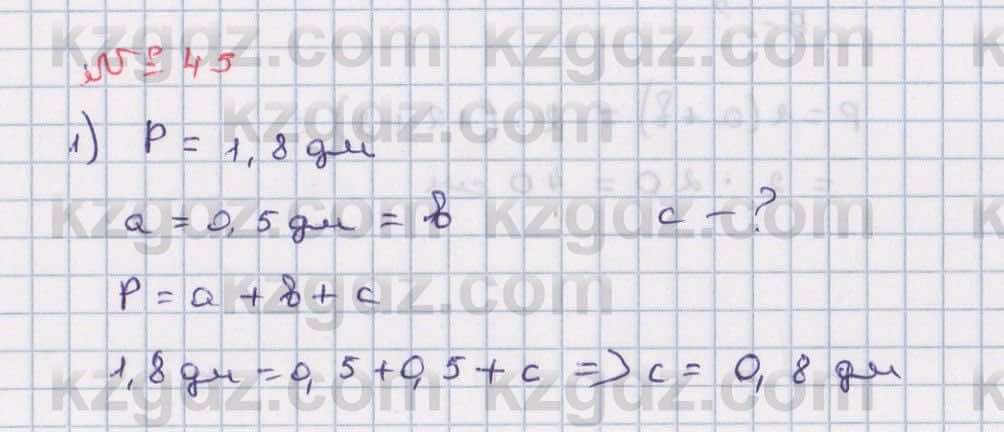 № 45
1) P = 1,8 дм
a = 0,5 дм = b c - ?
P = a + b + c
1,8 дм = 0,5 + 0,5 + c => c = 0,8 дм
kzgdz.com